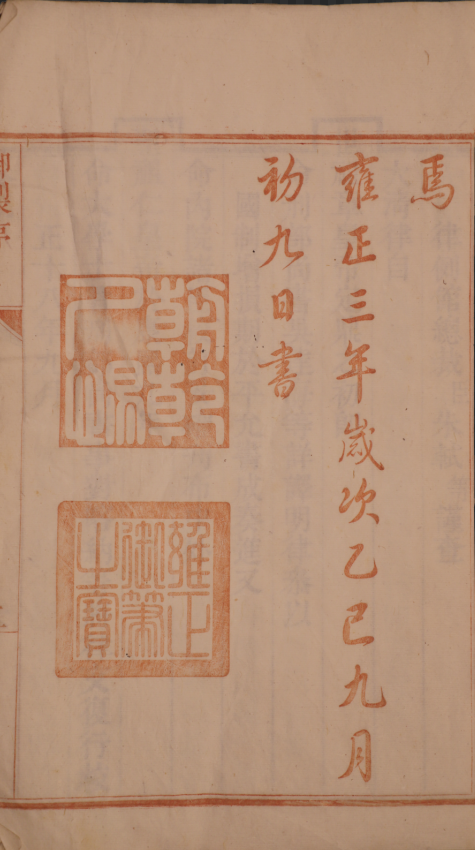 焉
雍正三年歲次乙巳九月
初九日書
朝乾夕惕
雍正御筆之寶
御製序